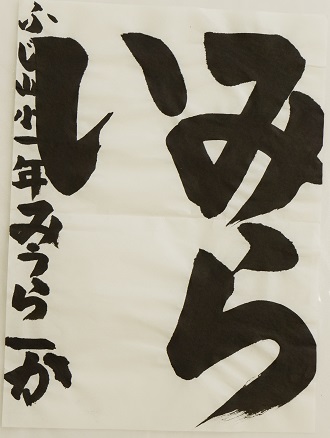 みら
い
ふじ山小一年みうら一か